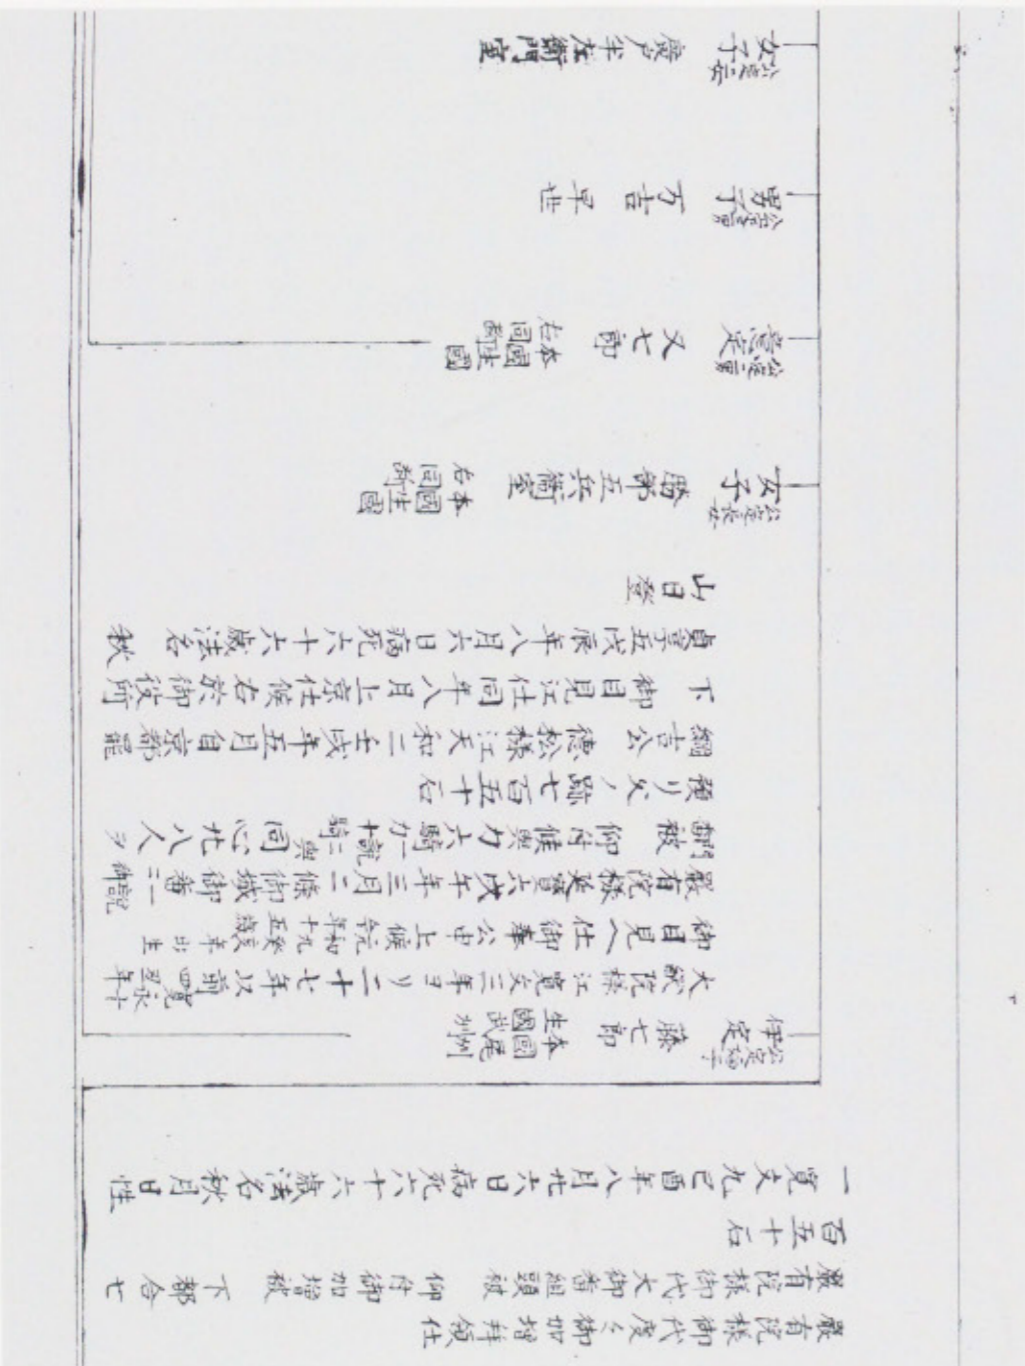 嚴有院様御代度々御加増拝領仕
嚴有院様御代大御番組頭被 仰付御加増被 下都合七
百五十石
一寛文九己酉年八月廿六日病死六十六歳法名秋月日性
伊定 藤七郎 本國尾州
生國武州
大猷院様江寛文三年ヨリ二十七年以前寛永十四丑年
御目見へ仕御奉公申上候
元和九癸亥年出生
嚴有院様延寶六戊午年三月二條御城御番
被 仰付候與力六騎 同心廿八人
預り父ノ跡七百五十石
綱吉公 徳松様江天和二壬戌年五月自京都罷
下 御目見江仕同年八月上京仕候右於御役所
貞享五戊辰年八月六日病死六十六歳法名 秋
山日登
公定長女
女子 五兵衛室 本國生國
右同断
公定二男
意定 又七郎 本國生國
右同断
公定三男
男子 万吉 早世
公定二女
女子 戸半左衛門室